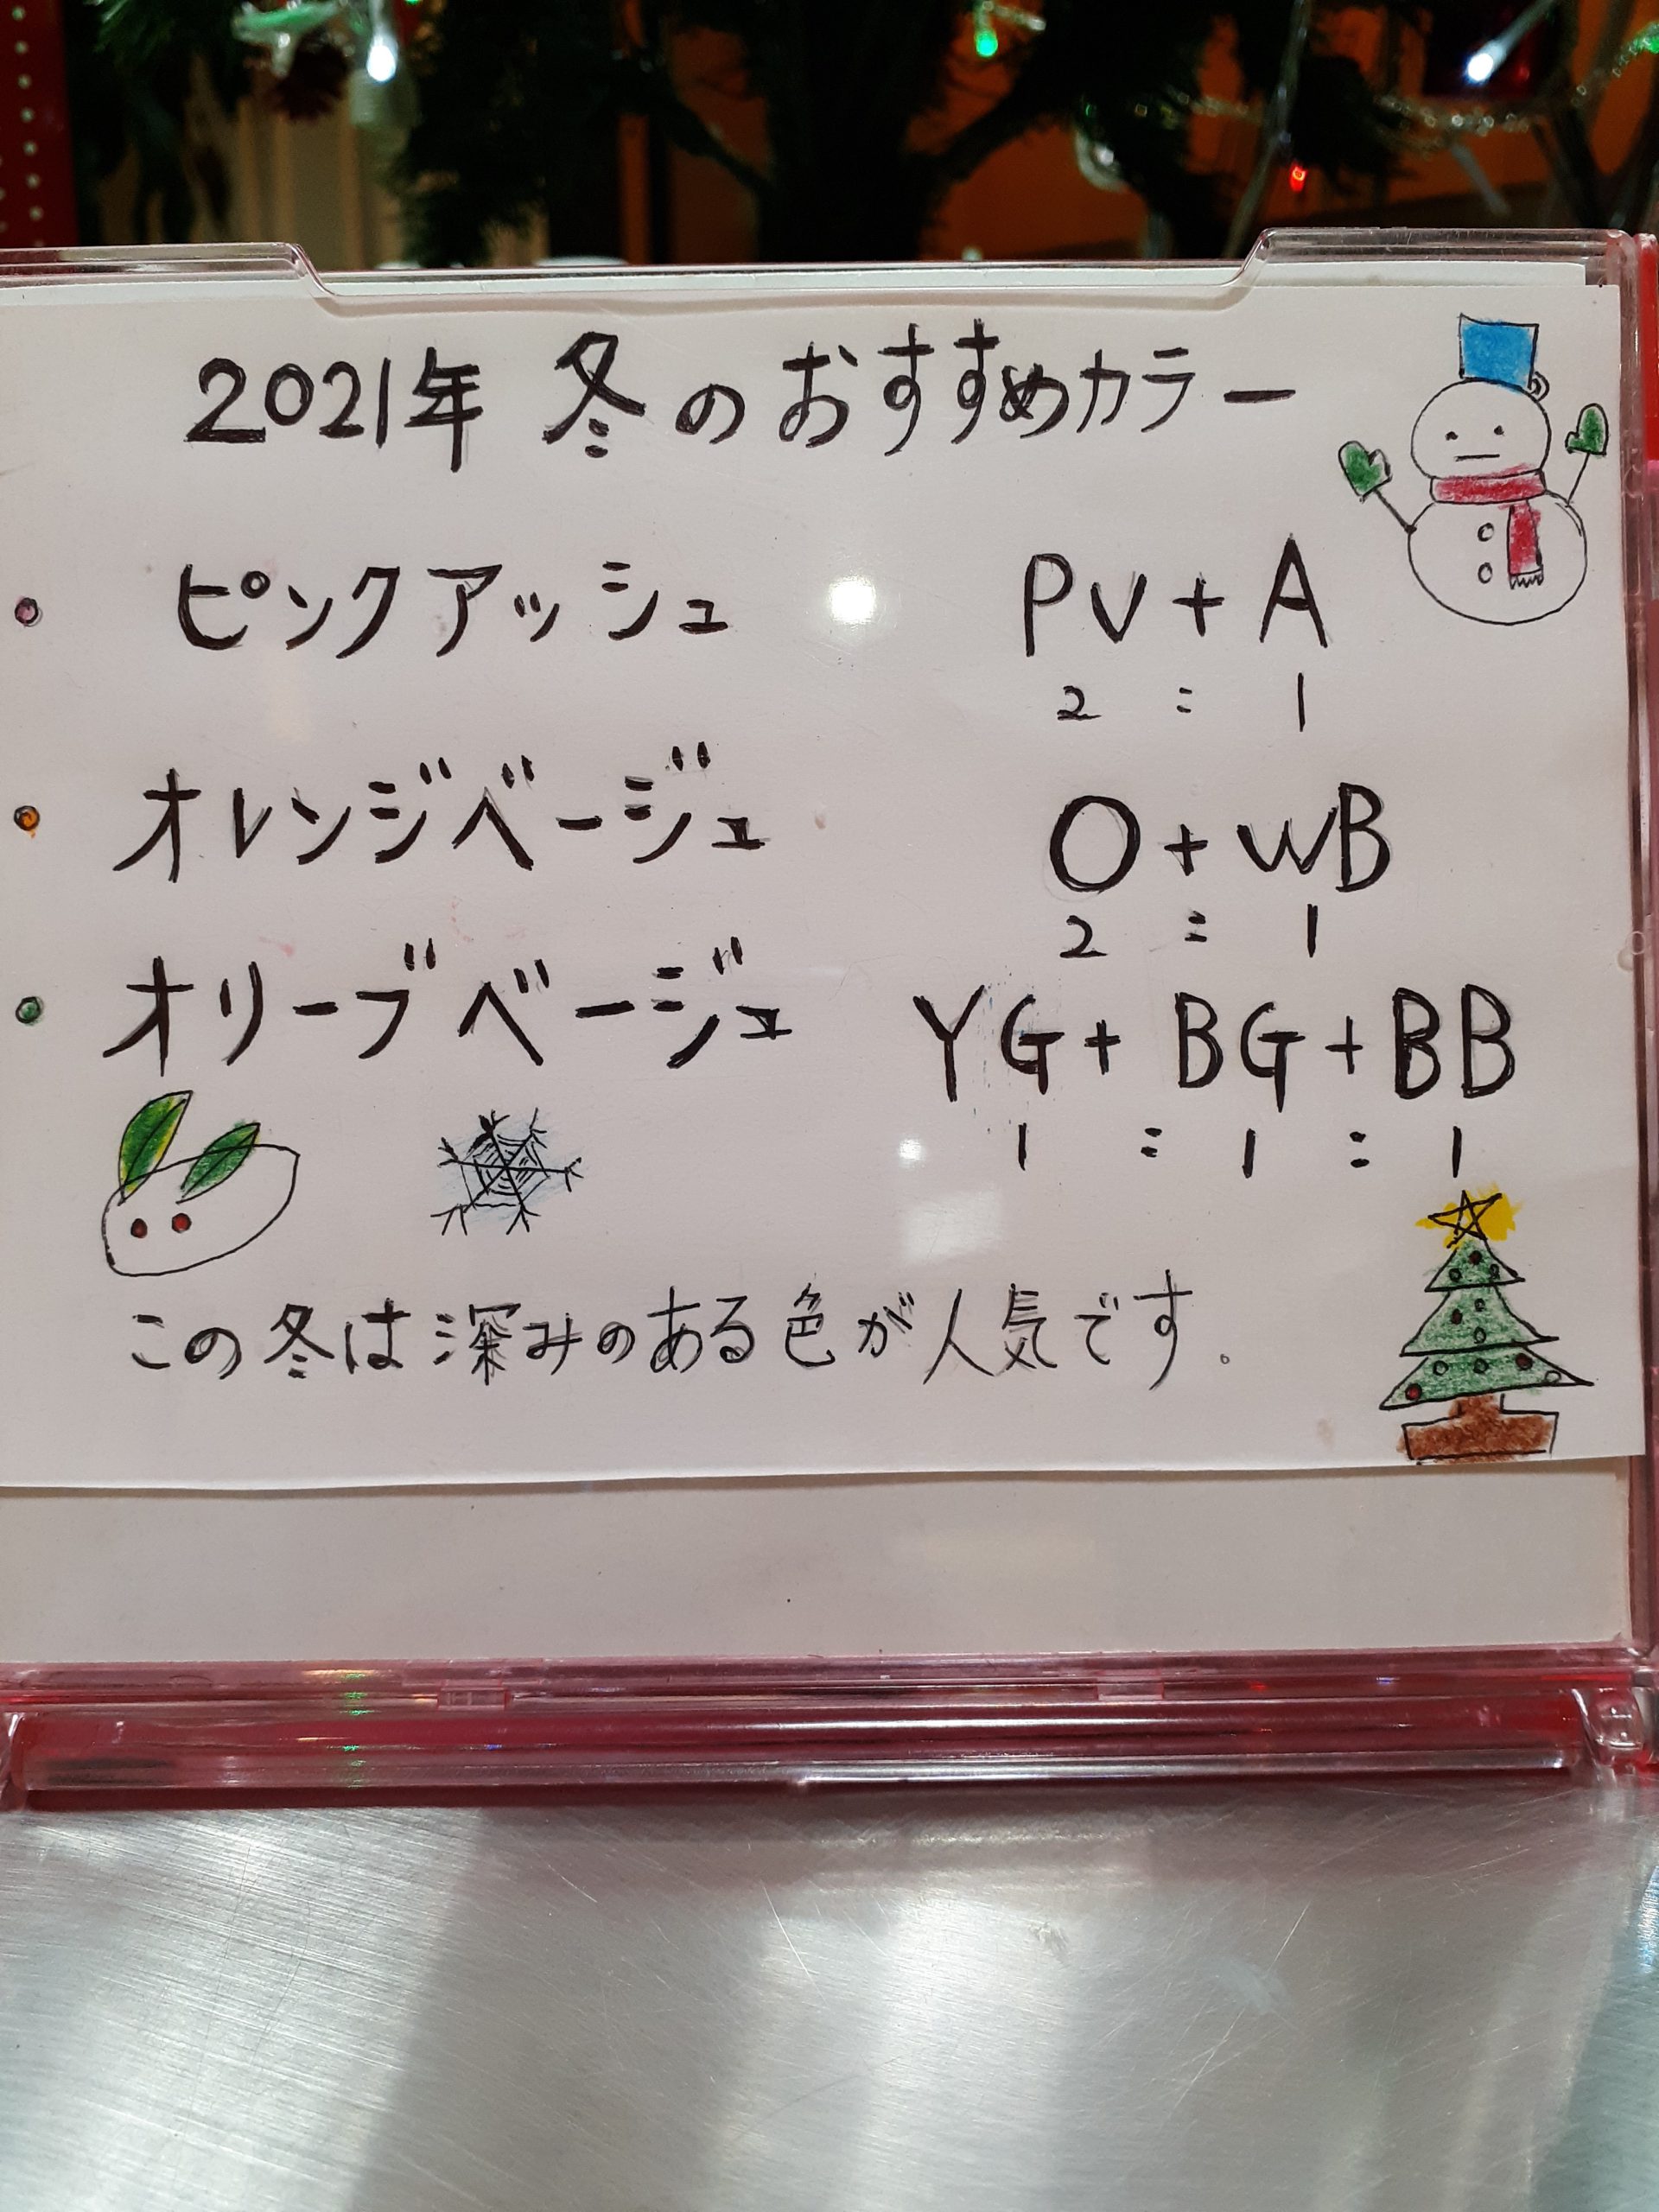 2021年 冬のおすすめカラー
・ ピンクアッシュ PV + A
2 : 1
・ オレンジベージュ O + WB
2 : 1
・ オリーブベージュ YG + BG + BB
1 : 1 : 1
この冬は深みのある色が人気です。